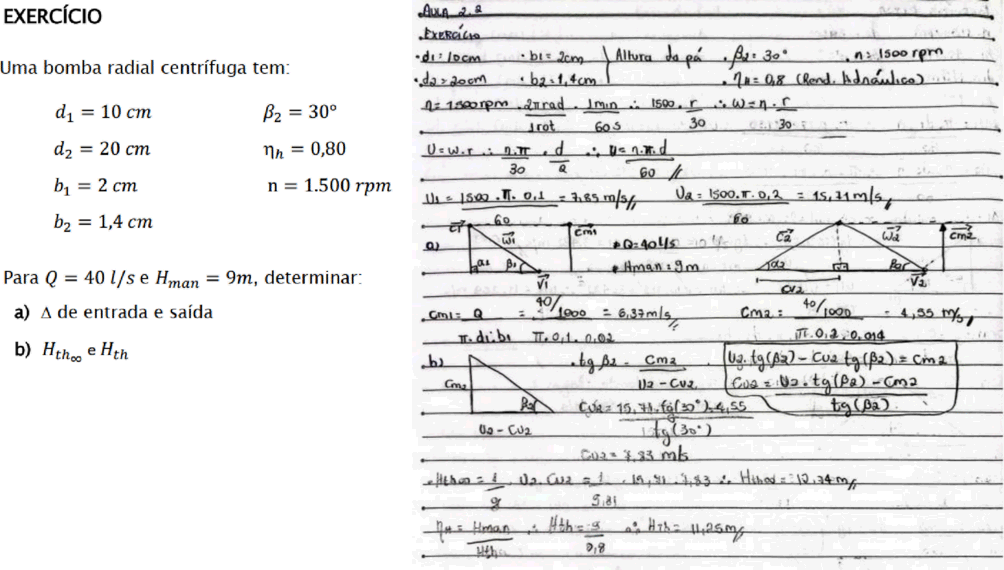 EXERCÍCIO
Uma bomba radial centrífuga tem:
d₁ = 10 cm β₂ = 30°
d₂ = 20 cm ηₕ = 0,80
b₁ = 2 cm n = 1.500 rpm
b₂ = 1,4 cm
Para Q = 40 l/s e Hₘₐₙ = 9m, determinar:
a) Δ de entrada e saída
b) Hₜₕ∞ e Hₜₕ
AULA 2.2
Exercício
d1 = 10cm b1 = 2cm Altura da pá β2 = 30° n = 1500 rpm
d2 = 20cm b2 = 1,4cm ηH = 0,8 (Rend. hidráulico)
n = 1500rpm . 2π rad / 1 rot . 1min / 60s ∴ 1500 . π / 30 ∴ ω = n . π / 30
U = ω.r ∴ n.π / 30 . d / 2 ∴ U = n.π.d / 60
U1 = 1500 . π . 0,1 / 60 = 7,85 m/s U2 = 1500 . π . 0,2 / 60 = 15,71 m/s
a) C1 W1 Cm1 α1 β1 V1 Q = 40 l/s C2 W2 Cm2
Hman = 9m α2 β2 V2 Cu2
Cm1 = Q / π.d1.b1 = 40/1000 / π.0,1.0,02 = 6,37m/s Cm2 = 40/1000 / π.0,2.0,014 = 4,55 m/s
b) Cm2 β2 U2 - Cu2 tg β2 = Cm2 / U2 - Cu2 U2.tg(β2) - Cu2 tg(β2) = Cm2
Cu2 = U2 . tg(β2) - Cm2 / tg(β2)
Cu2 = 15,71.tg(30°) - 4,55 / tg(30°)
Cu2 = 7,83 m/s
Hth∞ = 1 / g . U2.Cu2 = 1 / 9,81 . 15,71 . 7,83 ∴ Hth∞ = 12,54 m
ηH = Hman / Hth ∴ Hth = 9 / 0,8 ∴ Hth = 11,25m